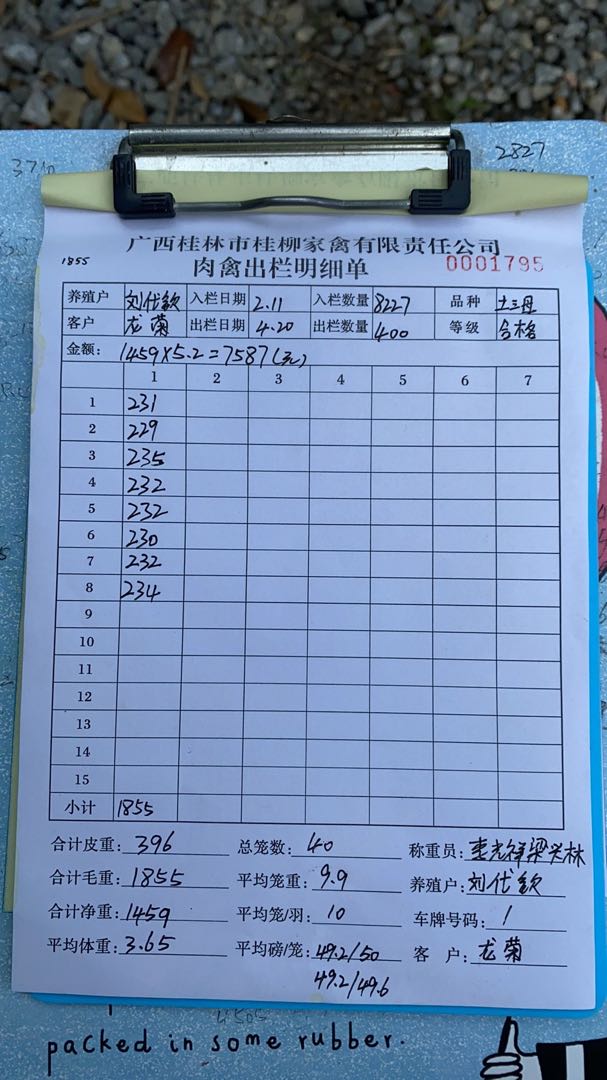 3710
2827
广西桂林市桂柳家禽有限责任公司
1855
肉禽出栏明细单 0001795
养殖户 刘代钦 入栏日期 2.11 入栏数量 8227 品种 土三母
客户 龙菊 出栏日期 4.20 出栏数量 400 等级 合格
金额: 1459×5.2=7587(元)
1 2 3 4 5 6 7
1 231
2 229
3 235
4 232
5 232
6 230
7 232
8 234
9
10
11
12
13
14
15
小计 1855
合计皮重: 396 总笼数: 40 称重员: 梁关林
合计毛重: 1855 平均笼重: 9.9 养殖户: 刘代钦
合计净重: 1459 平均笼/羽: 10 车牌号码: 1
平均体重: 3.65 平均磅/笼: 49.2/50 客 户: 龙菊
49.2/49.6
4505
packed in some rubber.